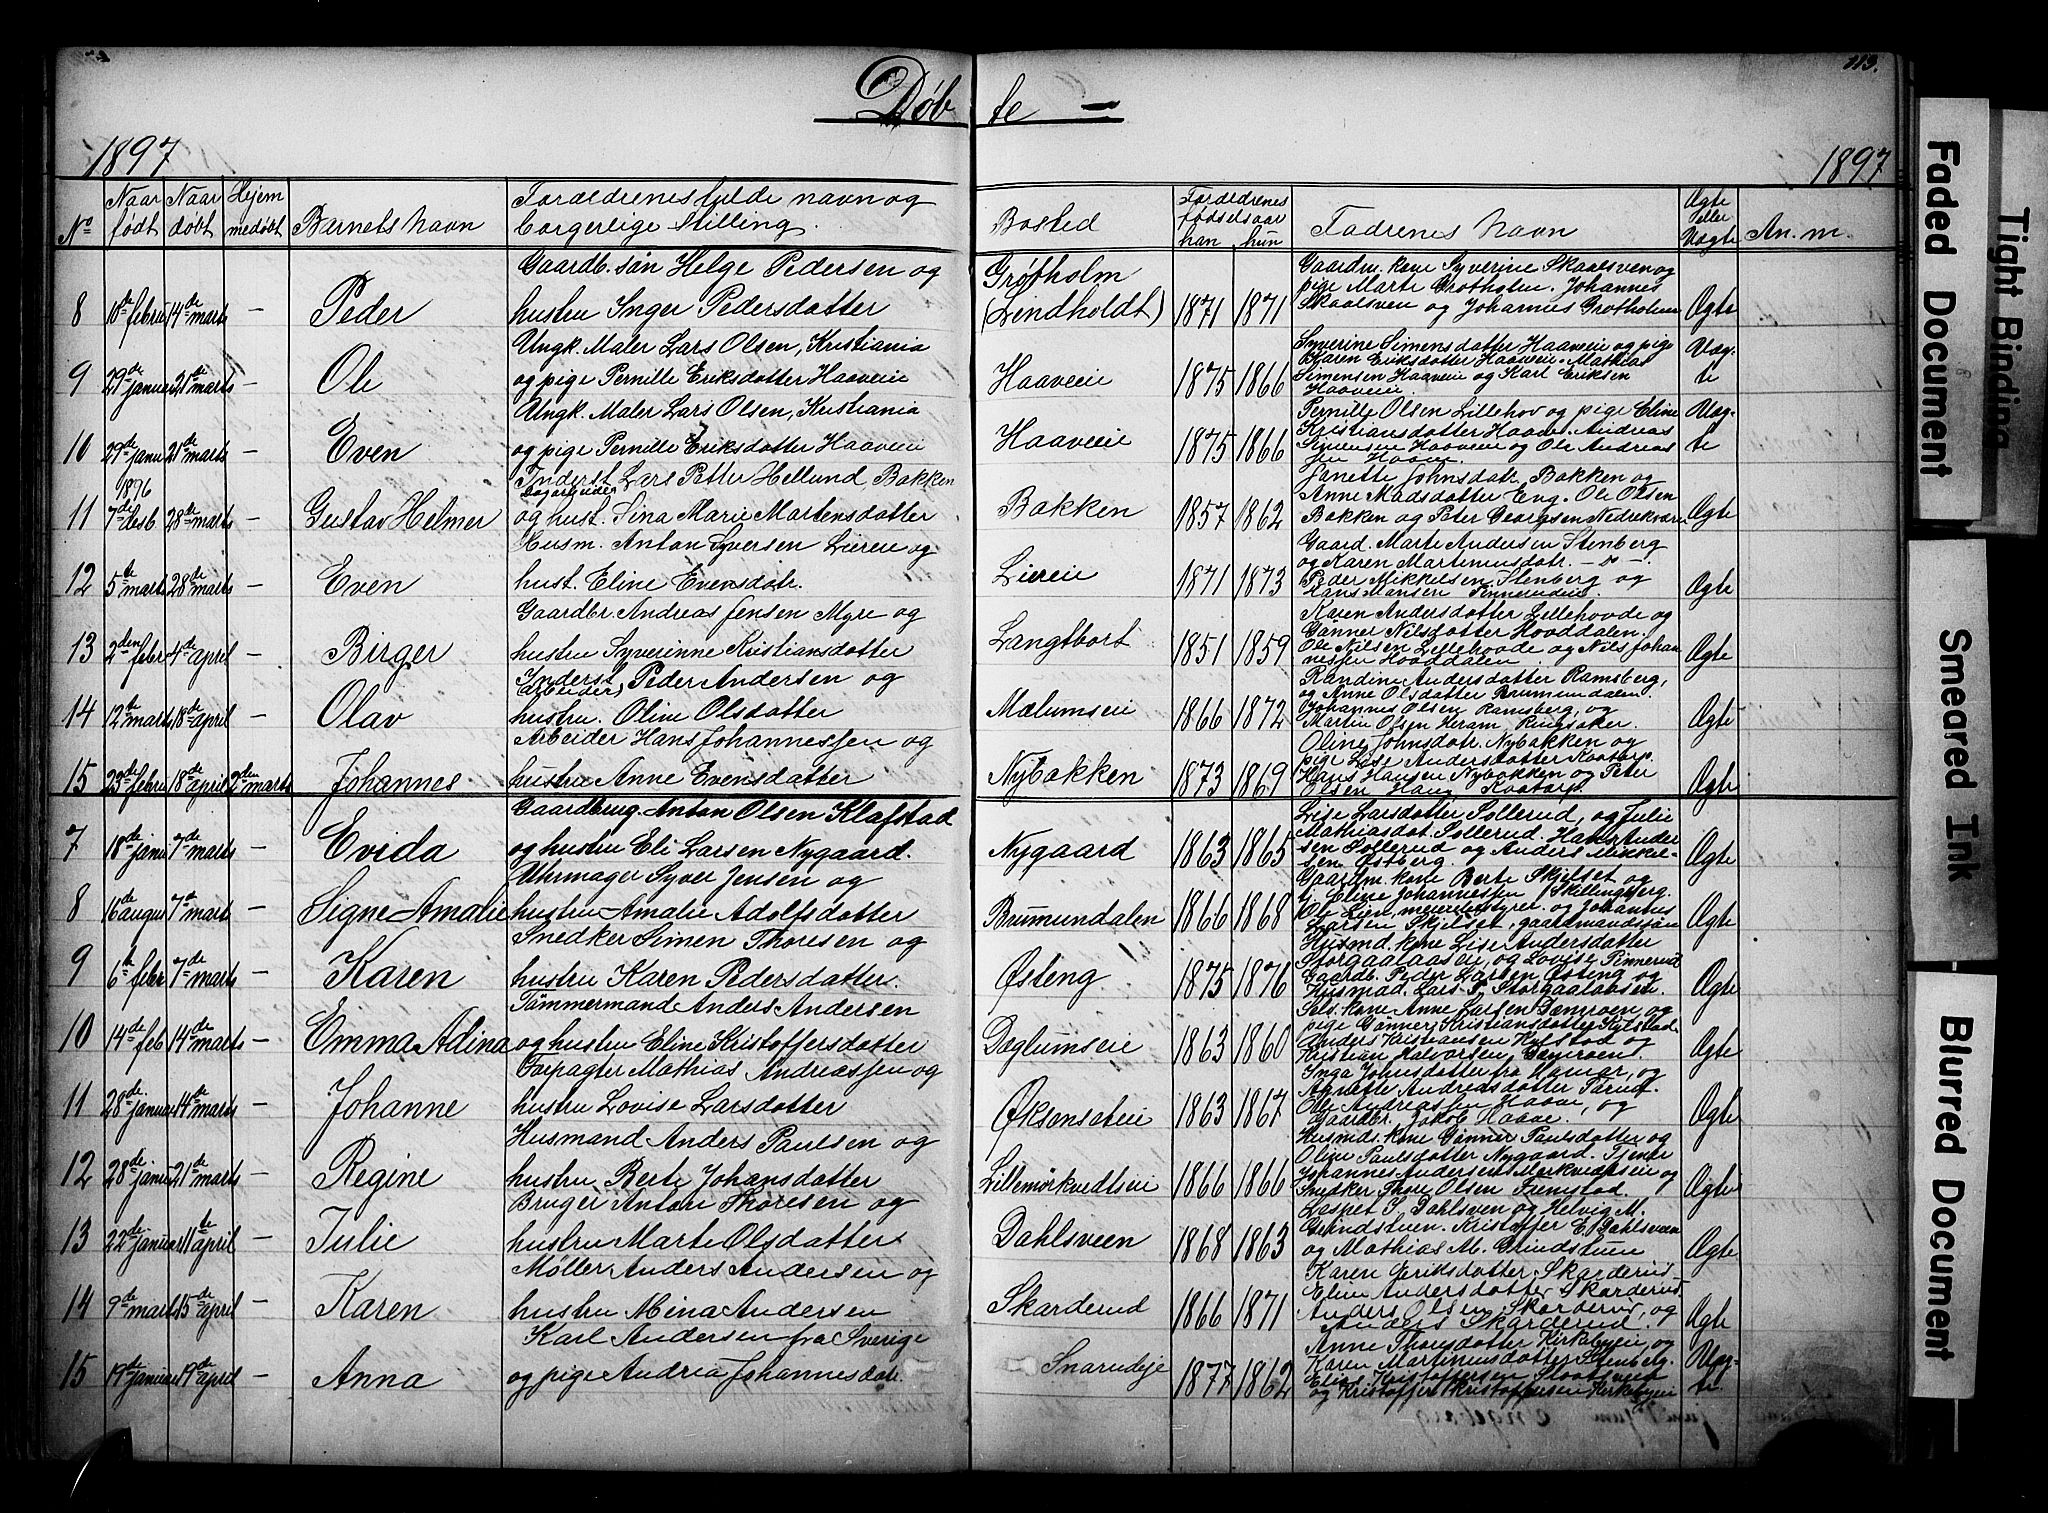 113.
Døb te —
1897 1897
No Naar født Naar døbt Hjem medøbt Barnets navn Foreldrenes fulde navn og borgerlige Stilling. Bosted Foreldrenes fødselsaar han hun Fadrenes navn Ægte eller Uægte An. m.
Gaardb. søn Helge Pedersen og Grøtholm Gaardm. kone Syverine Skaalsveen og
pige Marte Johannes
8 16de febru 14de marts — Peder hustru Inger Pedersdatter (Lindholdt) 1871 1871 Skaalsveen og Johannes Grøtholm Ægte
Ungk. Maler Lars Olsen, Kristiania Syverine Simensdatter Haaveie og pige
Karen Eriksdatter Haaveie. Mathias
9 29de januar 21de marts Ole og pige Pernille Eriksdatter Haaveie Haaveie 1875 1866 Simensen Haaveie og Karl Eriksen Uæg-
Haaveie te
Ungk. Maler Lars Olsen, Kristiania Pernille Olsen Lillehov og pige Eline
Kristiansdatter Andreas
10 29de janu 21de marts Even og pige Pernille Eriksdatter Haaveie Haaveie 1875 1866 Simensen Haaveie og Ole Andreas Uæg-
sen te
1896 Inderst Lars Petter Hellund, Bakken Janette Johnsdatr. Bakken og
Dagarbeider Anne Madsdatter Eng. Ole Olsen
11 7de desb. 28de marts — Gustav Helmer og hust. Sina Marie Martensdatter Bakken 1857 1862 Bakken og Peter Georgsen Ægte
Husm. Anton Syversen Liereie og Gaard. Marte Andersen Stenberg
og Karen Martiniusdatr. — " —.
12 5te marts 28de marts — Even hust. Eline Evensdatr. Liereie 1871 1873 Peder Mikkelsen Stenberg og Ægte
Hans Hansen
Gaardbr. Andreas Jensen Myre og Karen Andersdatter Lillehovde og
Gønner Nilsdatter Hovddalen.
13 2den febr 4de april — Birger hustru Syverinne Kristiansdatter Langtbort 1851 1859 Ole Nilsen Lillehovde og Nils Johan Ægte
nessen Hovddalen
Inderst Peder Andersen og Randine Andersdatter Ramsberg,
arbeider og Anne Olsdatter Brumundalen.
14 12te marts 18de april — Olav hustru. Oline Olsdatter Mælumseie 1866 1872 Johannes Olsen Ramsberg, og Ægte
Martin Olsen Heram Ringsaker.
Arbeider Hans Johannessen og Oline Johnsdatr. Nybakken og
pige Lise Andersdatter
15 23de febru 18de april 2den marts Johannes hustru Anne Evensdatter Nybakken 1873 1869 Hans Hansen Nybakken og Peter Ægte
Olsen Haug
Gaardbrug. Anton Olsen Klafstad Lise Larsdatter Sollerud, og Julie
Mathiasdat. Sollerud. Hans Ander
7 18de janu 7de marts Evida og hustru Eli Larsen Nygaard. Nygaard 1863 1865 sen Sollerud og Anders Mikkel- Ægte
sen Østberg.
Uhrmager Syver Jensen og Gaardm. kone Berte Skjelset og
Eline Johannessen Skillingsberg.
8 16de august 7de mart. — Signe Amalie hustru Amalie Adolfsdatter Brumundalen 1866 1868 Ole Lien, meieribestyrer og Johannes Ægte
Larsen Skjelset, gaardmandssøn
Snedker Simen Thoresen og Husmd. kone Lise Andersdatter
Storgaalaasen og Lovise Pinnerud
9 6te febr 7de marts — Karen hustru Karen Pedersdatter. Østeng 1875 1876 Gaardb. Peder Larsen Østeng og Ægte
Husmad. Lars P. Storgaalaasen.
Tømmermand Anders Andersen Sels. kone Anne Larsen Dæmroen og
pige Gønner Kristiansdatter Kylstad.
10 14de feb 14de marts — Emma Adina og hustru Eline Kristoffersdatter Døglumseie 1863 1860 Anders Kristiansen Kylstad og Ægte
Kristian Halvorsen Dæmroen.
Forpagter Mathias Andreassen og Inga Johnsdatter fra Hamar, og
Agnette Andreasdatter
11 28de januar 14de marts — Johanne hustru Lovise Larsdatter Øksensæteie 1863 1867 Ole Andreassen og Ægte
Gaardbr. Jakob
Husmand Anders Paulsen og Husmds. kone Gønner Paulsdatter og
Oline Paulsdatter Nygaard. Tjener
12 28de janu 21de marts — Regine hustru Berte Johansdatter Lillemørkvedtseie 1866 1866 Johannes Andersen og Ægte
Snedker Thore Olsen Fremstad.
Bruger Anton Thoresen og Dahlsveen og Helvig M.
Grindstuen. Kristoffer E. Dahlsveen
13 22de januar 11te april — Julie hustru Marte Olsdatter Dahlsveen 1868 1863 og Mathias M. Grindstuen Ægte
Møller Anders Andersen og Karen Eriksdatter Skarderud
Eline Andersdatter Skarderud
14 9de marts 15de april — Karen hustru Mina Andersen Skarderud 1866 1871 Anders Olsen Skarderud, og Ægte
Anders Skarderud.
Karl Andersen fra Sverige Anne Thoresdatter Kirkebyeie, og
Karen Martiniusdatter Stenberg.
15 19de januar 19de april Anna og pige Andrea Johannesdatr. Snarudeje 1877 1862 Elias Kristoffersen Uæg-
og Kristoffer Kristoffersen Kirkebyeie te.
Faded Document
Tight Binding
Smeared Ink
Blurred Document